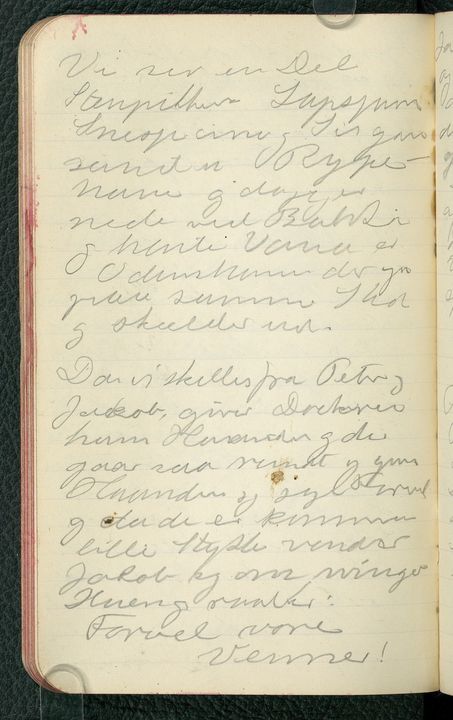 Vi ser en Del
Stenpikkere Lapspurve
Snespurve og
samt en Rype-
hane og da jeg er
nede ved
og hente Vand er
Odinshane der gaar
paa samme
og skælder ud.
Da vi skilles fra Peter og
Jakob, giver Doctoren
ham Haanden og de
gaar saa rundt og giver
Haanden og siger Farvel
og da de er kommen
lille Stykke vender
Jakob sig om svinger
Huen og raaber:
Farvel vore
Venner!